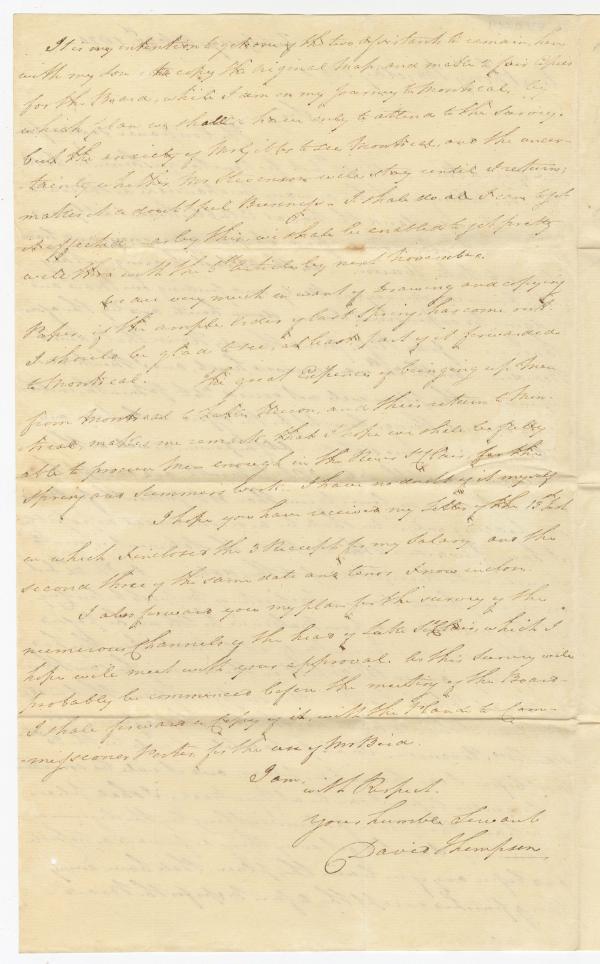 It is my intention to get one of the two assistants to remain here
with my son to copy the original map, and make two fair copies
for the Board, while I am on my Journey to Montreal, by
which plan we shall have only to attend to the Survey.
but the anxiety of Mr Gibbs to see Montreal, and the uncer-
-tainty whether Mr Stevenson will stay until I return;
makes it a doubtful Business. I shall do all I can to get
it effected as by this, we shall be enabled to get pretty
well thro with the Article by next November.
We are very much in want of drawing and copying
Paper, if the ample order of last Spring has come out
I should be glad to see, at least part of it forwarded
to Montreal. The great Expence of bringing up Men
from Montreal to Lake Huron, and their return to Mon-
treal, makes me remark, that I hope we shall be fully
able to procure Men enough in the River St Clair, for the
Spring and Summers work. I have no doubt of it myself
I hope you have received my letter of the 13 Inst
in which I inclosed the 3 Receipts for my Salary and the
second three of the same date and tenor I now inclose.
I also forward you my plan for the survey of the
numerous Channels of the head of Lake St Clair, which I
hope will meet with your approval. As this Survey will
probably be commenced before the meeting of the Board
I shall forward a Copy of it, with the to Com-
-missioner Porter for the use of Mr Bird.
I am,
with Respect.
Your humble Servant
David Thompson